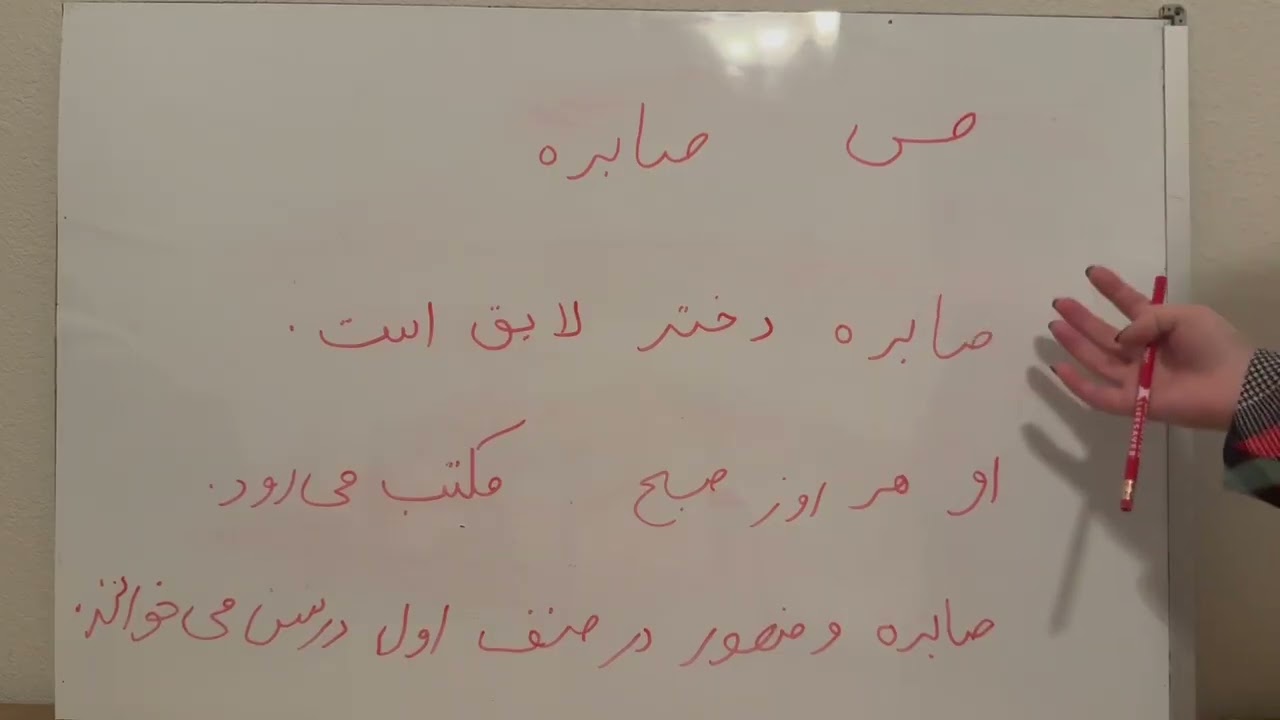 ص صابره
صابره دختر لایق است.
او هر روز صبح مکتب می‌رود.
صابره و منصور در صنف اول درس می‌خوانند.